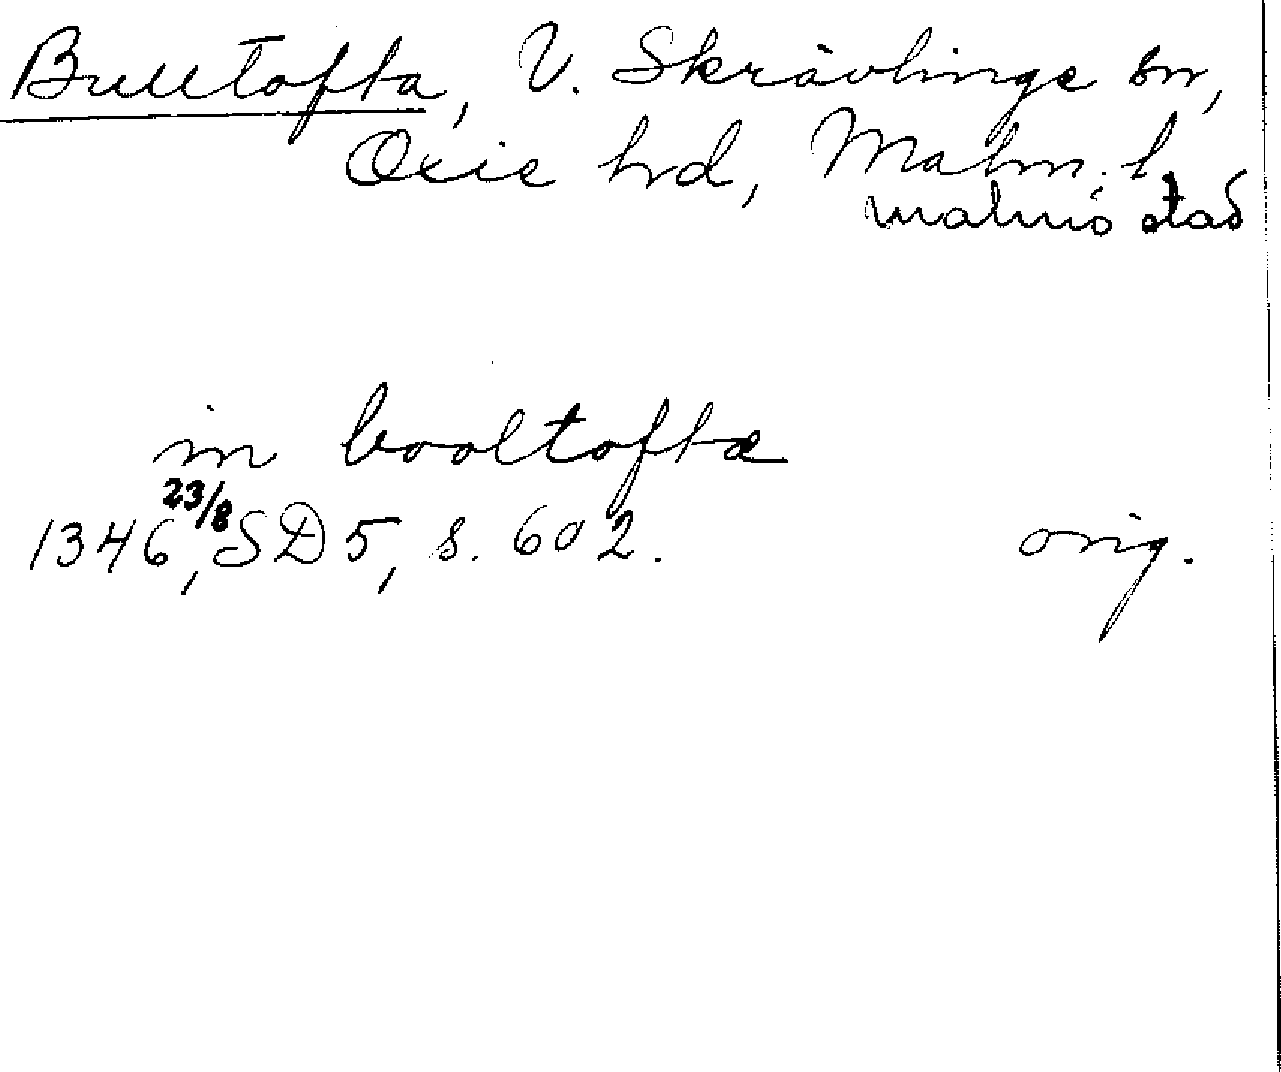 Bulltofta, V. Skrävlinge sn,
Oxie hd, Malm. l.
Malmö stad
in booltoftæ
1346 23/8, SD 5, s. 602. orig.